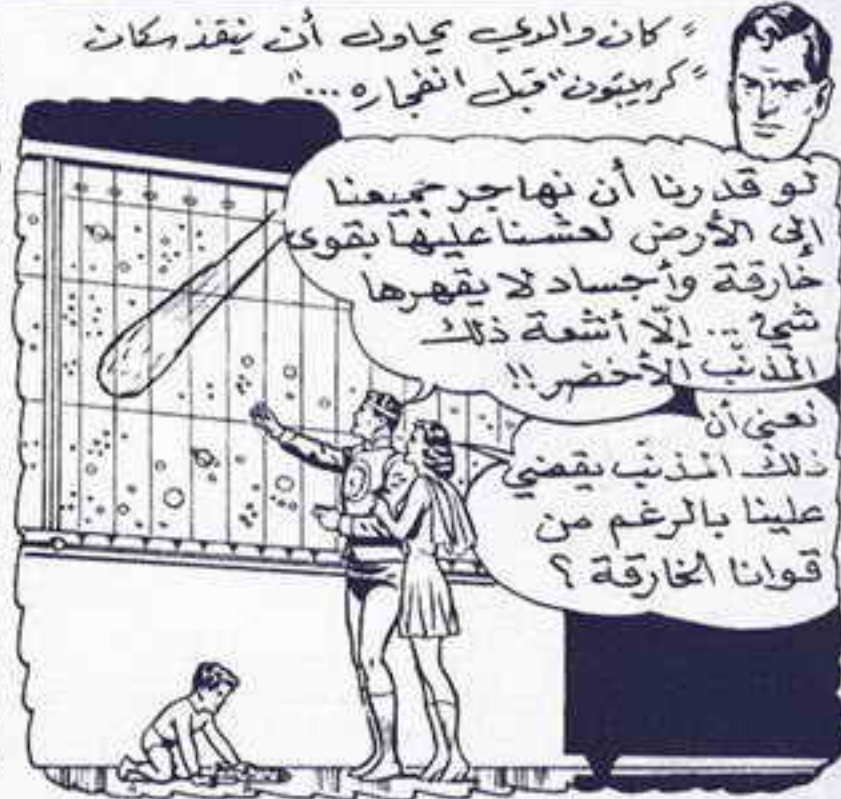 "كان والدي يحاول أن ينقذ سكان
"كريبتون" قبل انفجاره..."
لو قدرنا أن نهاجر جميعنا
إلى الأرض لعشنا عليها بقوى
خارقة وأجساد لا يقهرها
شيء... إلّا أشعة ذلك
المذنّب الأخضر!!
تعني أن
ذلك المذنّب يقضي
علينا بالرغم من
قوانا الخارقة؟